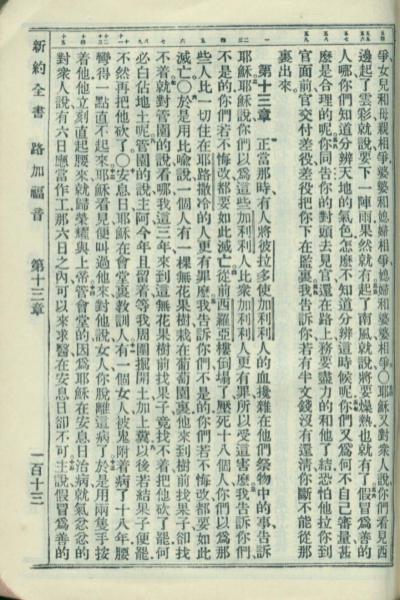 爭女兒和母親相爭婆婆和媳婦相爭媳婦和婆婆相爭〇耶穌又對衆人說你們看見西
邊起了雲彩就說要下一陣雨果然就有起了南風就說將要燥熱也就有了假冒爲善的
人哪你們知道分辨天地的氣色怎麼不知道分辨這時候呢你們又爲何不自己審量甚
麼是合理的呢你同告你的對頭去見官還在路上務要盡力的和他了結恐怕他拉你到
官面前官交付差役差役把你下在監裏我告訴你若有半文錢沒有還清你斷不能從那
裏出來
第十三章 正當那時有人將彼拉多使加利利人的血攙雜在他們祭物中的事告訴
耶穌耶穌說你們以爲這些加利利人比衆加利利人更有罪所以受這害麼我告訴你們
不是的你們若不悔改都要如此滅亡從前西羅亞樓倒塌了壓死十八個人你們以爲那
些人比一切住在耶路撒冷的人更有罪麼我告訴你們不是的你們若不悔改都要如此
滅亡〇於是用比喻說一個人有一棵無花果樹栽在葡萄園裏他來到樹前找果子卻找
不着就對管園的說看哪我這三年來到這無花果樹前找果子竟找不着把他砍了罷何
必白佔地土呢管園的說主阿今年且留着等我周圍掘開土加上糞以後若結果子便罷
不然再把他砍了〇安息日耶穌在會堂裏教訓人有一個女人被鬼附着病了十八年腰
彎得一點直不起來耶穌看見便叫過他來對他說女人你脫離這病了於是用兩隻手按
着他他立刻直起腰來就歸榮耀與上帝管會堂的因爲耶穌在安息日治病就氣忿忿的
對衆人說有六日應當作工那六日之內可以來求醫在安息日卻不可主說假冒爲善的
新約全書 路加福音 第十三章 一百十三